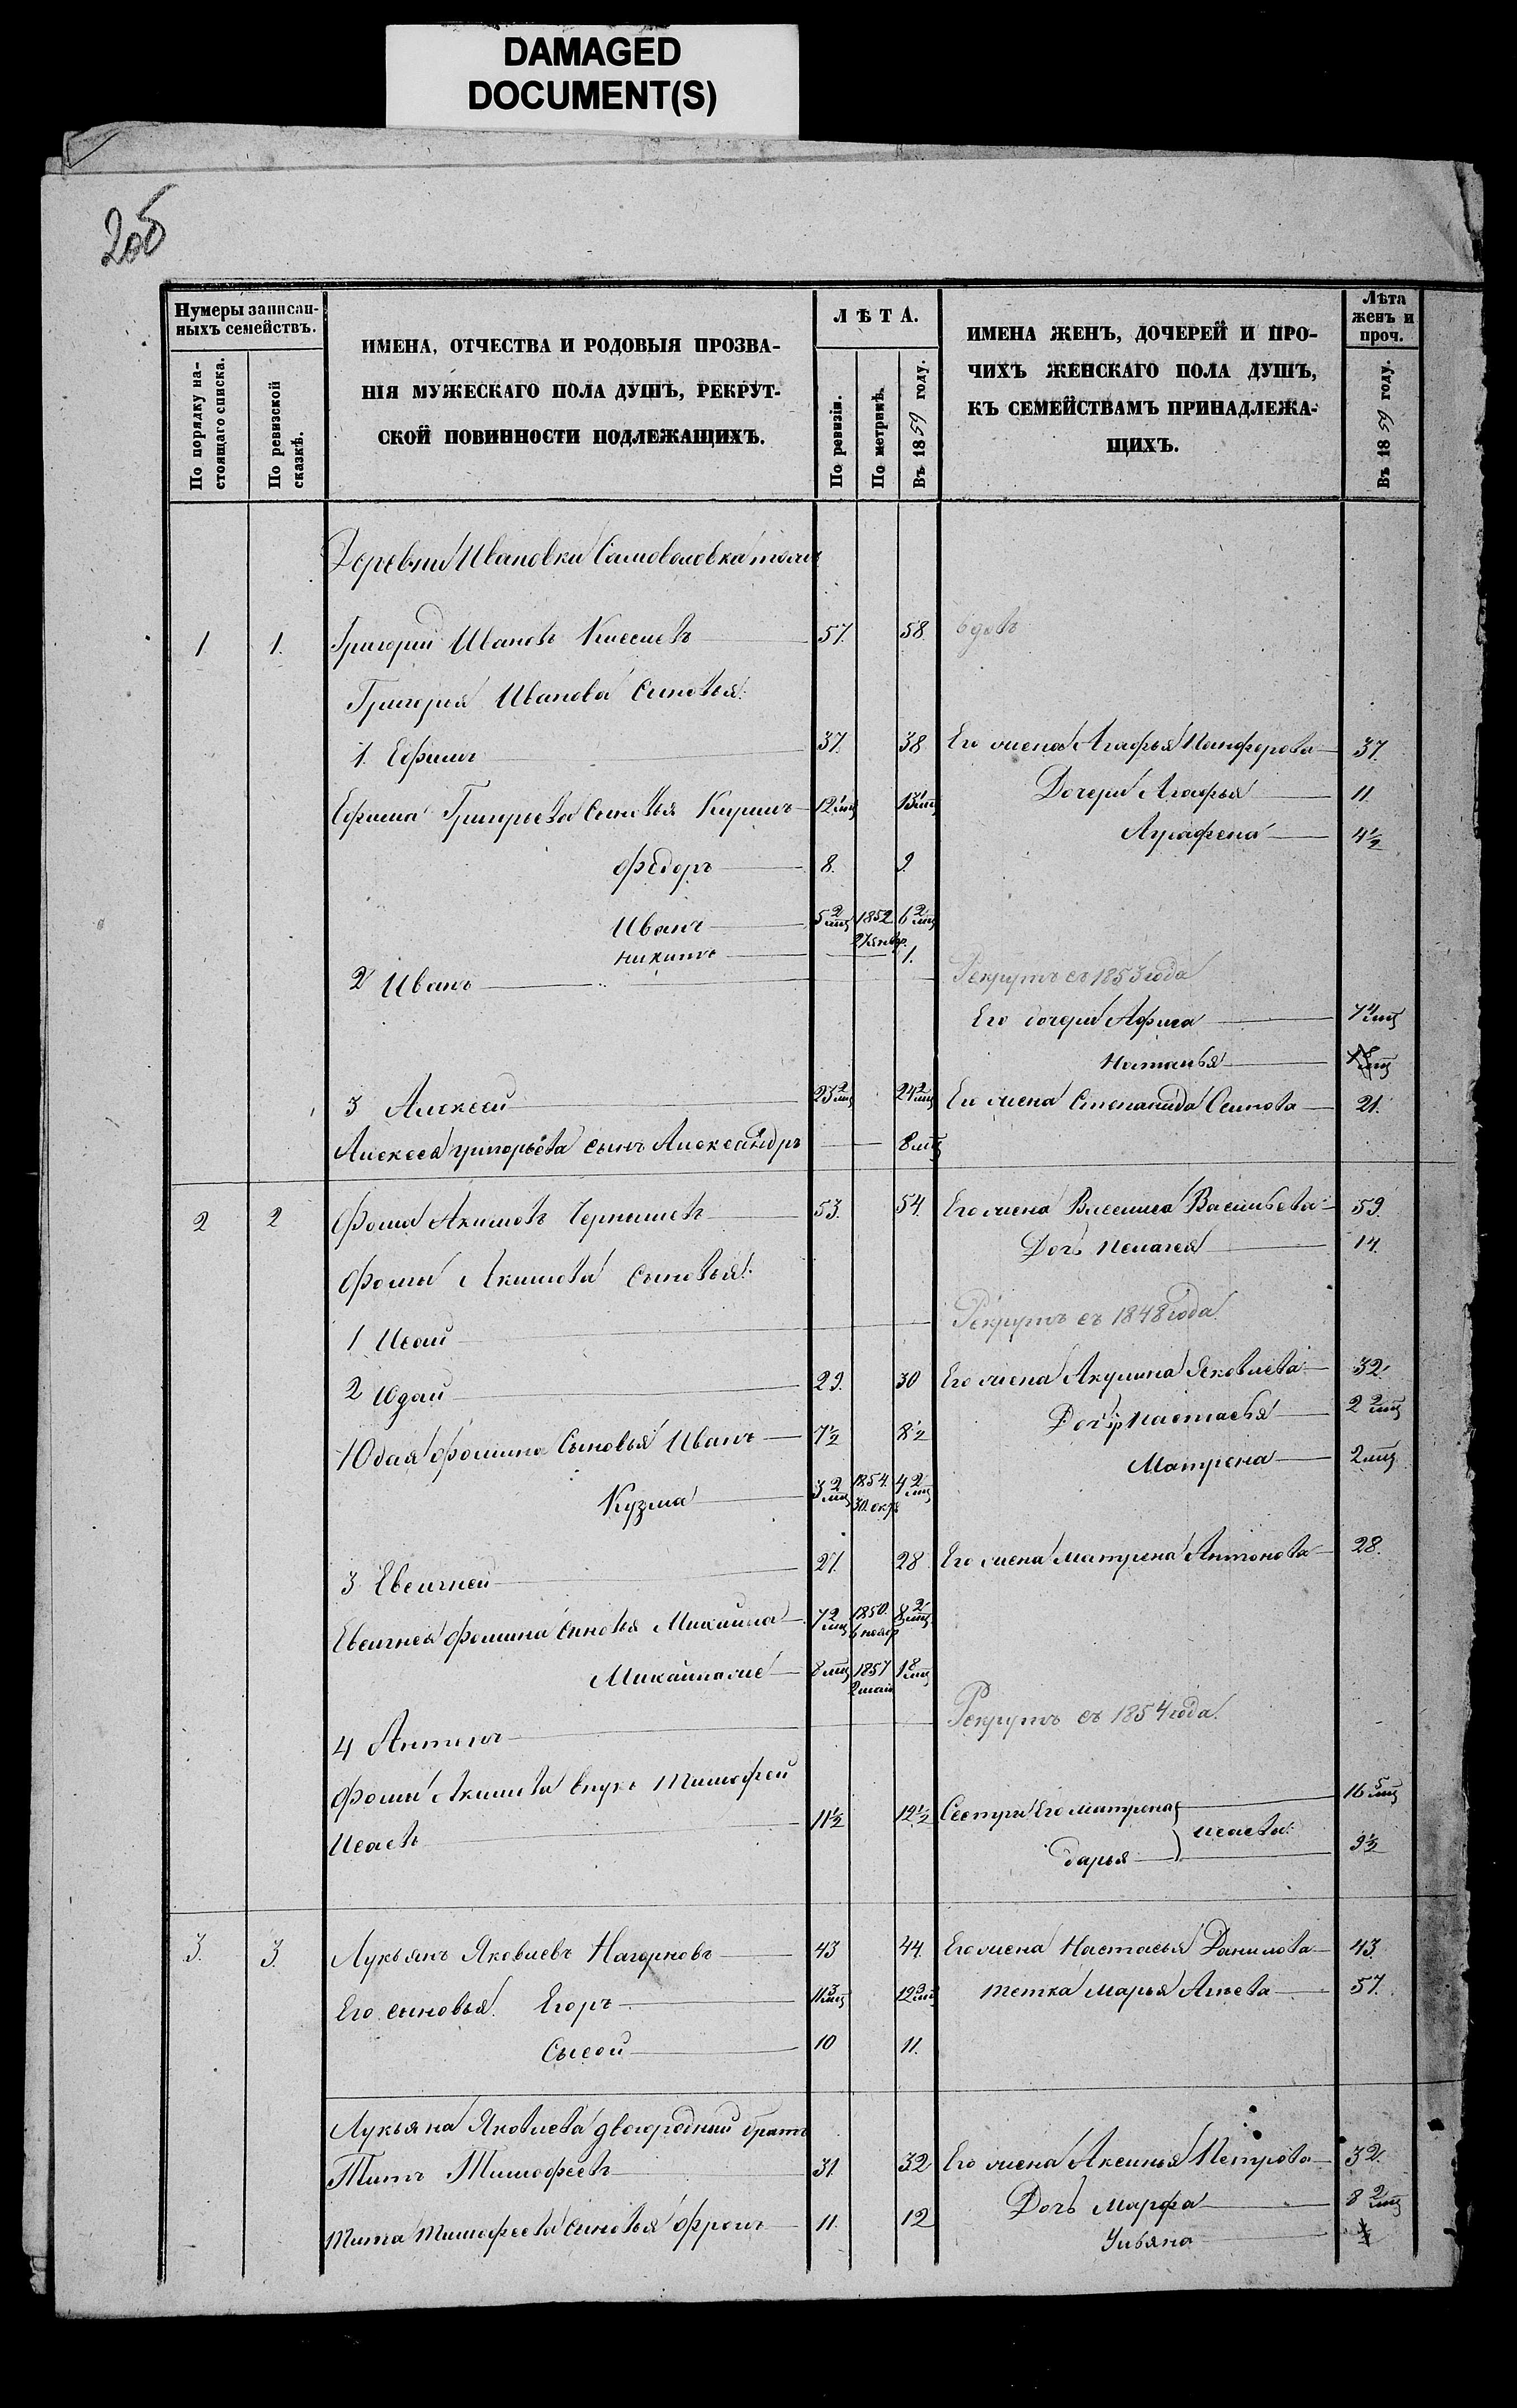 DAMAGED
DOCUMENT(S)
Нумеры записан-
ныхъ семействъ.
По порядку на-
стоящаго списка.
По ревизской
сказкѣ.
ИМЕНА, ОТЧЕСТВА И РОДОВЫЯ ПРОЗВА-
НІЯ МУЖЕСКАГО ПОЛА ДУШЪ, РЕКРУТ-
СКОЙ ПОВИННОСТИ ПОДЛЕЖАЩИХЪ.
ЛѢТА.
По ревизіи.
По метрикѣ.
Въ 1859 году.
ИМЕНА ЖЕНЪ, ДОЧЕРЕЙ И ПРО-
ЧИХЪ ЖЕНСКАГО ПОЛА ДУШЪ,
КЪ СЕМЕЙСТВАМЪ ПРИНАДЛЕЖА-
ЩИХЪ.
Лѣта
женъ и
проч.
Въ 1859 году.
Деревни Ивановки
1 1. Григорий Ивановъ 57. 58. вдовъ
Григорья Иванова сыновья:
1. Ефимъ 37. 38 Его жена Агафья Панферова 37.
Дочери Агафья 11.
Ефима Григорьева сыновья Кирилъ 12 1/мц 13 1/мц
Аграфена 4½
Федоръ 8. 9.
Иванъ 5 2/мц 1852 27 6 2/мц
Никита 1.
2 Иванъ Рекрутъ съ 1853 года
Его дочери 7 4/мц
Наталья
3 Алексей 23 2/мц 24 2/мц Его жена Степанида Осипова 21.
Алексея григорьева сынъ Александръ 8 мц
2 2 Фома Акимовъ Чернышевъ 53. 54. Его жена Василиса Васильева 59.
Дочь Пелагея 14.
Фомы Акимова сыновья:
1 Исай Рекрутъ съ 1848 года
2 Юдай 29. 30 Его жена Акулина Яковлева 32.
Дочери Настасья 2 2/мц
Юдая Фомина сыновья Иванъ 7½ 8½
Матрена 2 мц
Кузма 3 2/мц 1854. 30. окт 4 2/мц
3 Евсигней 27. 28 Его жена Матрена Антонова 28.
Евсигнея Фомина сыновья Михайла 7 2/мц 1850. 6 ноябр 8 2/мц
Михайла же 8 мц 1857 2 маія 1 8/мц
4 Антипъ Рекрутъ съ 1854 года.
Фомы Акимова внукъ Тимофей
Исаевъ 11½ 12½ Сестры его Матрена 16 5/мц
Исаевы
Дарья 9½
3. 3. Лукьянъ Яковлевъ Нагорновъ 43 44. Его жена Настасья Данилова 43.
Его сыновья Егоръ 11 3/мц 12 3/мц тетка Марья 57.
Сысой 10 11.
Лукьяна Яковлева двоюродный братъ
Титъ Тимофеевъ 31. 32 Его жена Аксинья Петрова 32.
Дочь Марфа 8 2/мц
Тита Тимофеева сыновья Фролъ 11. 12
Ульяна